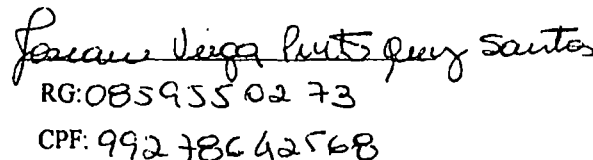 Josiane Veiga Pinto Queiroz Santos
RG:0859550273
CPF: 99278642568